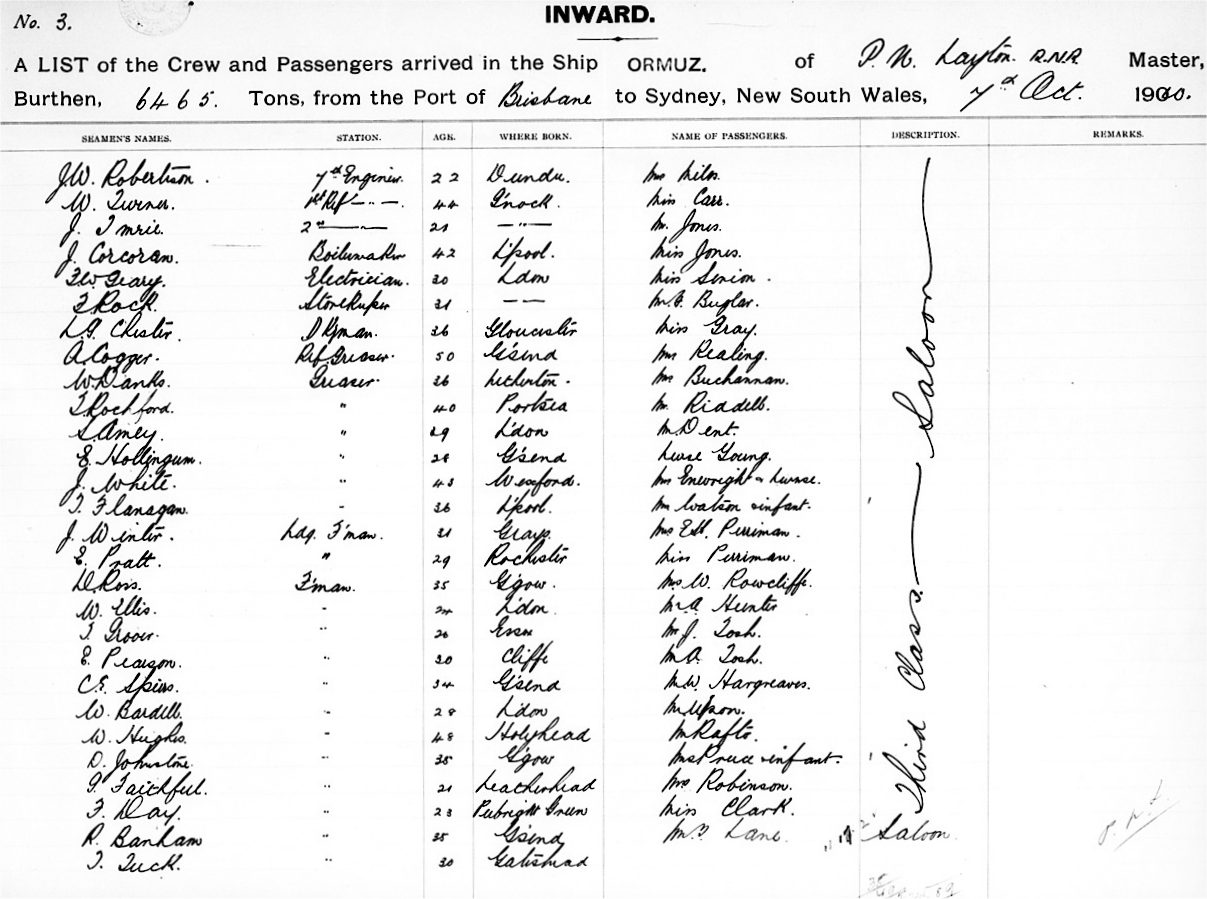 No. 3.
INWARD.
A LIST of the Crew and Passengers arrived in the Ship ORMUZ. of P. N. Layton. R.N.R Master,
Burthen, 6465. Tons, from the Port of Brisbane to Sydney, New South Wales, 7th Oct. 1900.
SEAMEN'S NAMES. STATION. AGE. WHERE BORN. NAME OF PASSENGERS. DESCRIPTION. REMARKS.
J.W. Robertson. 7th Engineer. 22 Dundee. Mrs Miles.
W. Turner. 1st Ref — " —. 44 G'nock. Miss Carr.
J. Imrie. 2nd — " — 21 — " — Mr. Jones.
J. Corcoran. Boilermaker 42 L'pool. Miss Jones.
Geary. Electrician. 30 L'don Miss Senior.
F. Rock. Storekeeper 31 — — Buglar.
L.G. Chester. D Kyman. 36 Gloucester Miss Gray.
A. Cogger. Ref. Greaser. 50 G'send Mrs Realing.
W. Danks. Greaser. 36 Mrs Buchannan.
T. Rochford. " 40 Portsea Mr. Riddell.
S. Amey. " 29 L'don M Dent.
E. Hollingum. " 28 G'send Nurse Young.
J. White. " 43 Wexford. Mrs Enewright & Nurse.
T. Flanagan. " 36 L'pool. Mrs Watson & infant. 1
J. Winter. Ldg. F'man. 31 Grays. Mrs Perriman.
E. Pratt. " 29 Rochester Miss Perriman.
D. Ross. F'man. 35 G'gow. Mrs W. Rowcliffe.
W. Ellis. " 24 L'don. Mr A. Hunter
T. Grover. " 26 Essex Mr J. Tosh.
E. Pearson. " 30 Cliffe M A. Tosh.
C.E. Spiers. " 34 G'send M W. Hargreaves.
W. Bardell. " 28 L'don M Upson.
W. Hughes. " 48 Holyhead M Rafts.
D. Johnstone. " 35 G'gow Mrs Pruce & infant. 1
G. Faithful. " 21 Leatherhead Mrs Robinson.
F. Day. " 23 Pirbright Green Miss Clark.
R. Banham " 35 G'send M F Lane. Saloon
T. Tuck. " 30 Gateshead
Saloon
Third Class